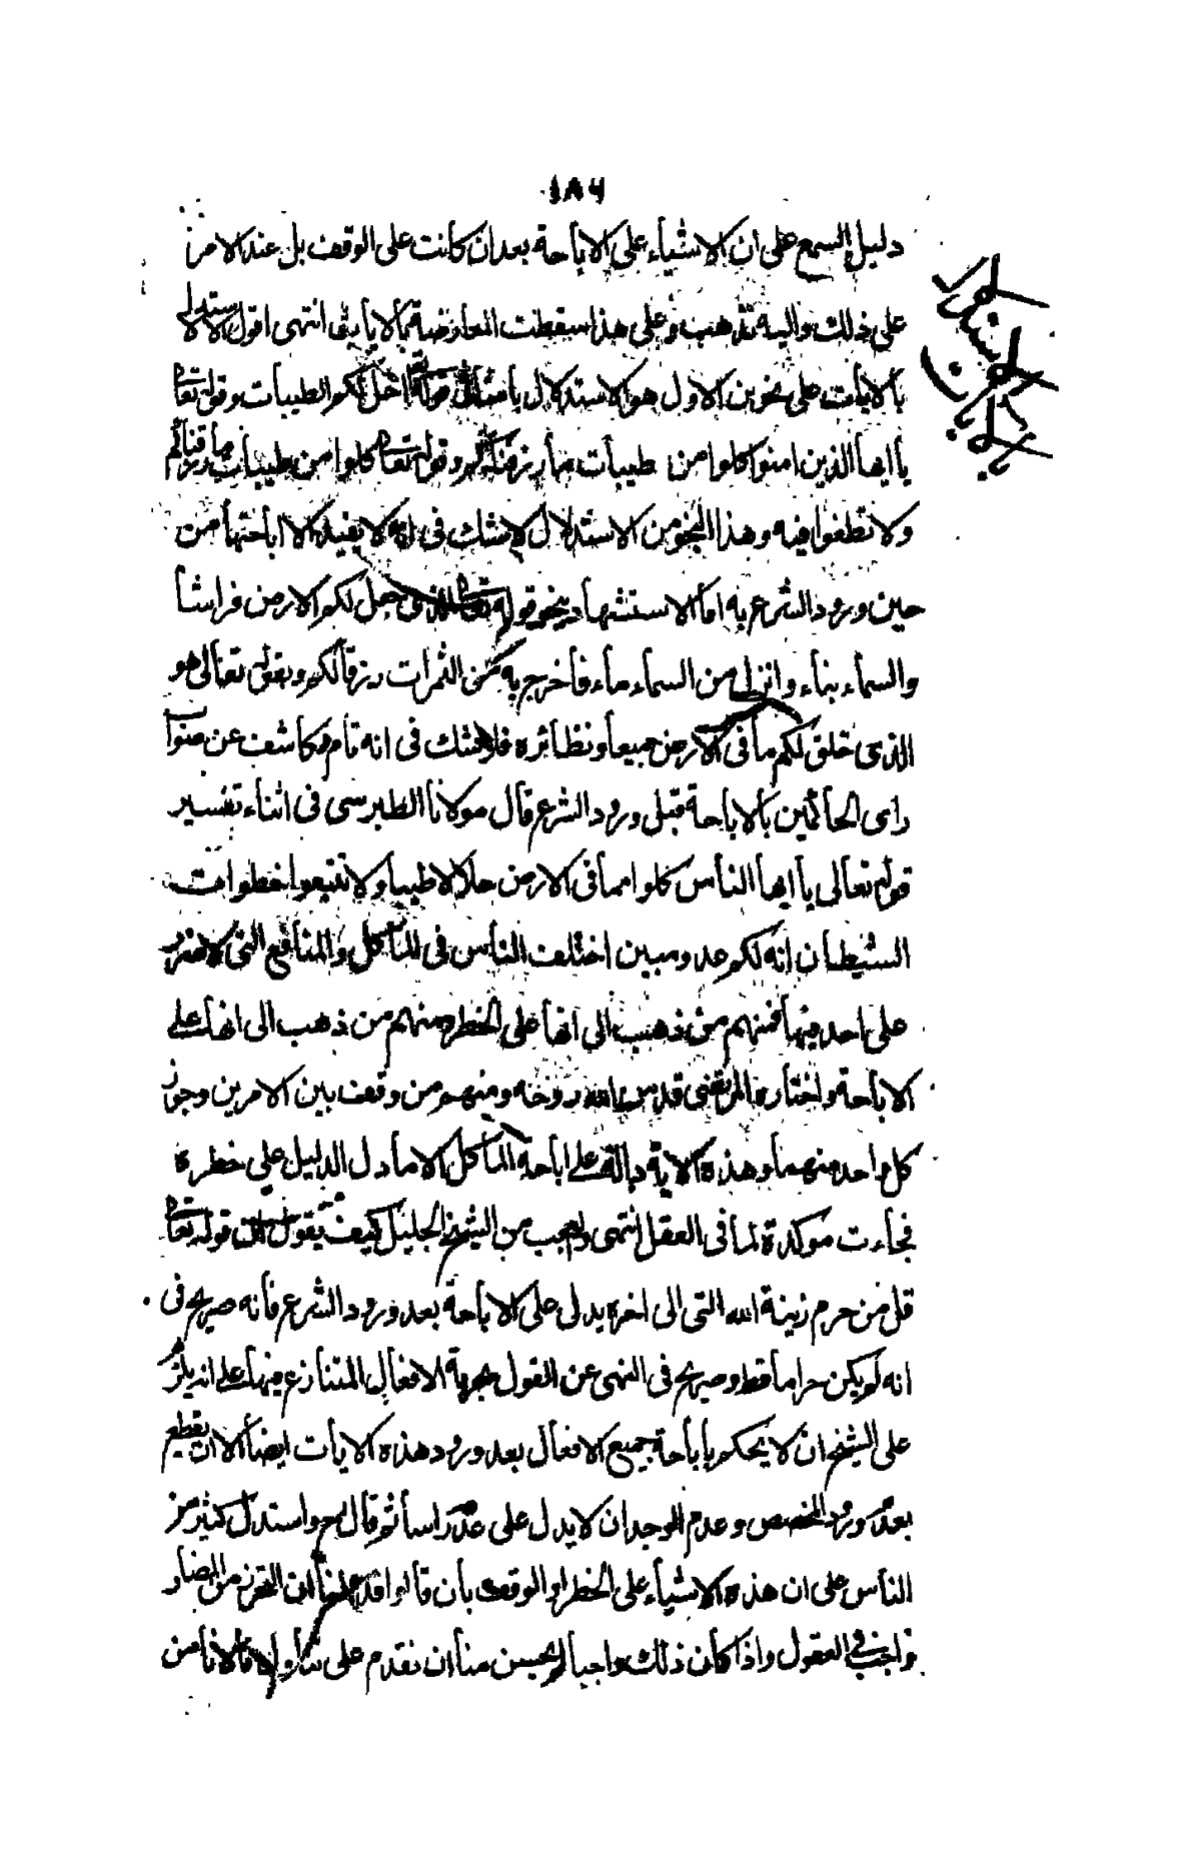 ١٨٦
دليل السمع على ان الاشياء على الاباحة بعد ان كانت على الوقف بل عندنا الامر
على ذلك واليه نذهب وعلى هذا سقطت المعارضة بالايات انتهى اقول الاستدلال
بالايات على نحوين الاول هو الاستدلال بامثال قوله تعالى احل لكم الطيبات وقوله تعالى
يا ايها الذين امنوا كلوا من طيبات ما رزقناكم وقوله تعالى كلوا من طيبات ما رزقناكم
ولا تطغوا فيه وهذا النحو من الاستدلال لا شك فى انه لا يفيد الا اباحتها من
حين ورود الشرع به اما الاستشهاد بنحو قوله تعالى الذى جعل لكم الارض فراشا
والسماء بناء وانزل من السماء ماء فاخرج به من الثمرات رزقا لكم وبقوله تعالى هو
الذى خلق لكم ما فى الارض جميعا ونظائره فلا شك فى انه تام كاشف عن صواب
راى الحاكمين بالاباحة قبل ورود الشرع قال مولانا الطبرسى فى اثناء تفسير
قوله تعالى يا ايها الناس كلوا مما فى الارض حلالا طيبا ولا تتبعوا خطوات
الشيطان انه لكم عدو مبين اختلف الناس فى المأكل والمنافع التى لا ضرر
على احد فيها فمنهم من ذهب الى انها على الحظر ومنهم من ذهب الى انها على
الاباحة واختاره المرتضى قدس الله روحه ومنهم من وقف بين الامرين وجوز
كل واحد منهما وهذه الاية دالة على اباحة المأكل الا ما دل الدليل على حظره
فجاءت موكدة لما فى العقل انتهى والعجب من الشيخ الجليل كيف يقول ان قوله تعالى
قل من حرم زينة الله التى الى اخره يدل على الاباحة بعد ورود الشرع فانه صريح فى
انه لم يكن حراما قط وصريح فى النهى عن القول بحرمة الافعال المتنازع فيها على انه يلزم
على الشيخ ان لا يحكم باباحة جميع الافعال بعد ورود هذه الايات ايضا الا ان يقطع
بعدم ورود المخصص وعدم الوجدان لا يدل على عدمه راسا ثم قال رح واستدل كثير من
الناس على ان هذه الاشياء على الحظر او الوقف بان قالوا قد علمنا ان التحرز من المضار
واجب فى العقول واذا كان ذلك واجبا لم يحسن منا ان نقدم على تناول ما لا نأمن